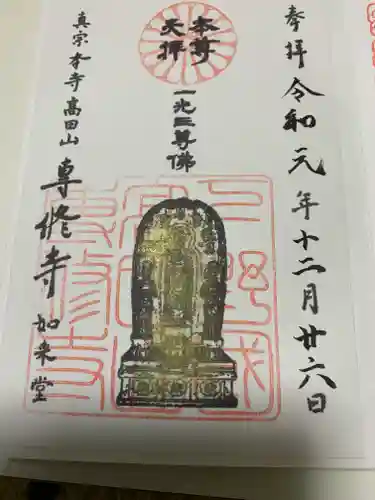 奉拝 令和元年十二月廿六日
本尊
天拝
一光三尊佛
真宗本寺高田山
専修寺 如来堂